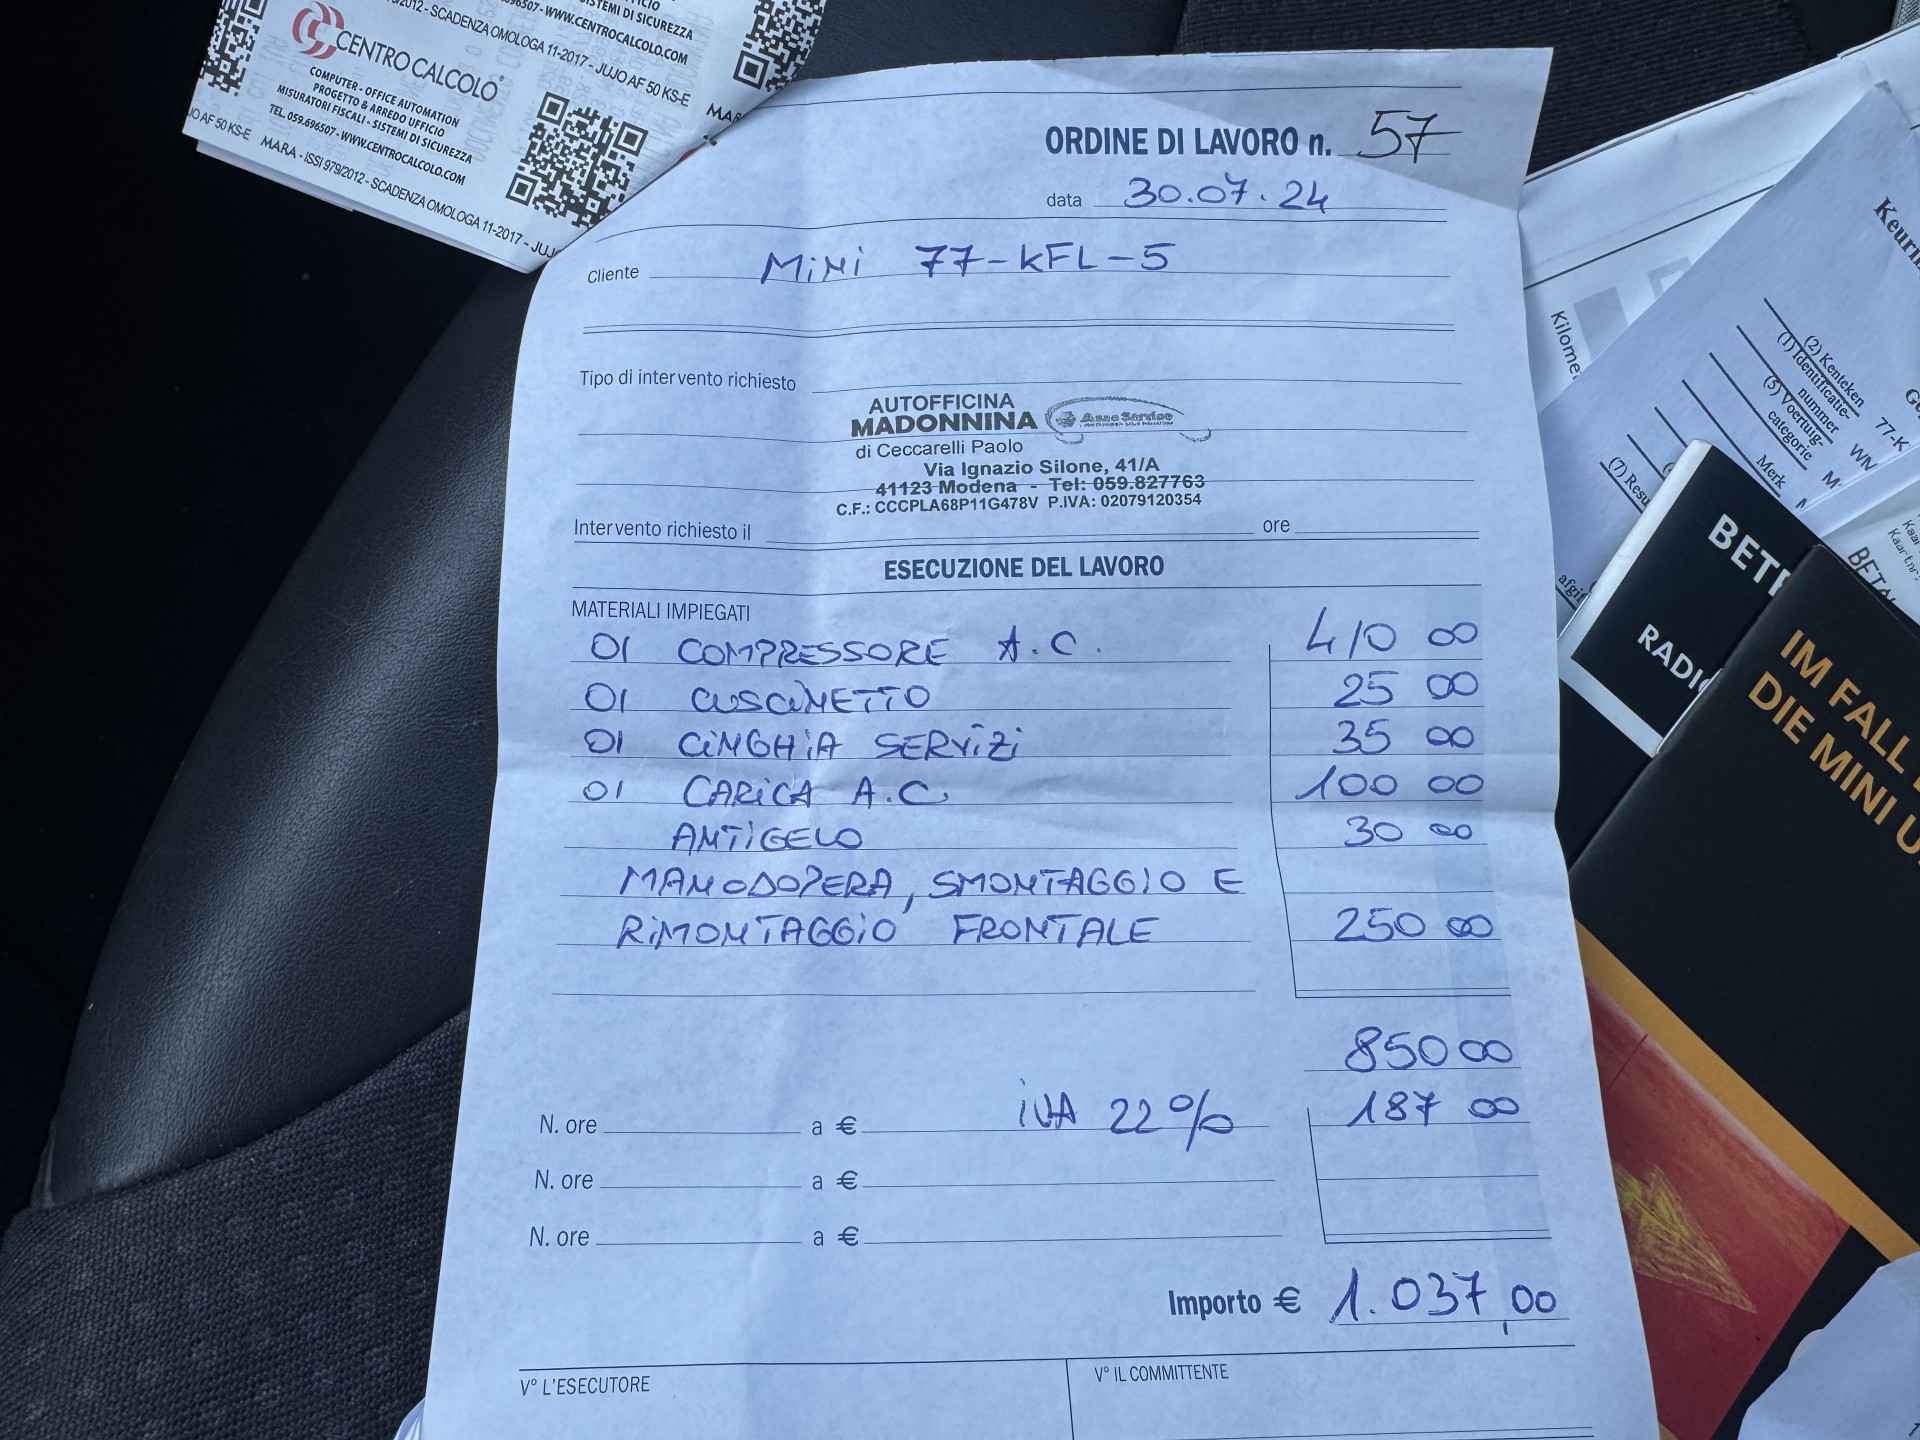 CENTRO CALCOLO
COMPUTER - OFFICE AUTOMATION
PROGETTO & ARREDO UFFICIO
MISURATORI FISCALI - SISTEMI DI SICUREZZA
TEL. 059.696507 - WWW.CENTROCALCOLO.COM
MARA - ISSI 979/2012 - SCADENZA OMOLOGA 11-2017 - JUJO AF 50 KS-E
ORDINE DI LAVORO n. 57
data 30.07.24
Cliente MiNi 77-KFL-5
Tipo di intervento richiesto
AUTOFFICINA
MADONNINA
di Ceccarelli Paolo
Via Ignazio Silone, 41/A
41123 Modena - Tel: 059.827763
C.F.: CCCPLA68P11G478V P.IVA: 02079120354
Intervento richiesto il ore
ESECUZIONE DEL LAVORO
MATERIALI IMPIEGATI
01 COMPRESSORE A.C. 410 00
01 CUSCiNETTO 25 00
01 CiNGHiA SERViZi 35 00
01 CARiCA A.C. 100 00
ANTiGELO 30 00
MANODOPERA, SMONTAGGIO E
RiMONTAGGiO FRONTALE 250 00
850 00
N. ore a € iVA 22% 187 00
N. ore a €
N. ore a €
Importo € 1.037,00
V° L'ESECUTORE V° IL COMMITTENTE
(2) Kenteken
(1) Identificatie-
nummer
(5) Voertuig-
categorie
Merk
77-K
IM FALL
DIE MINI